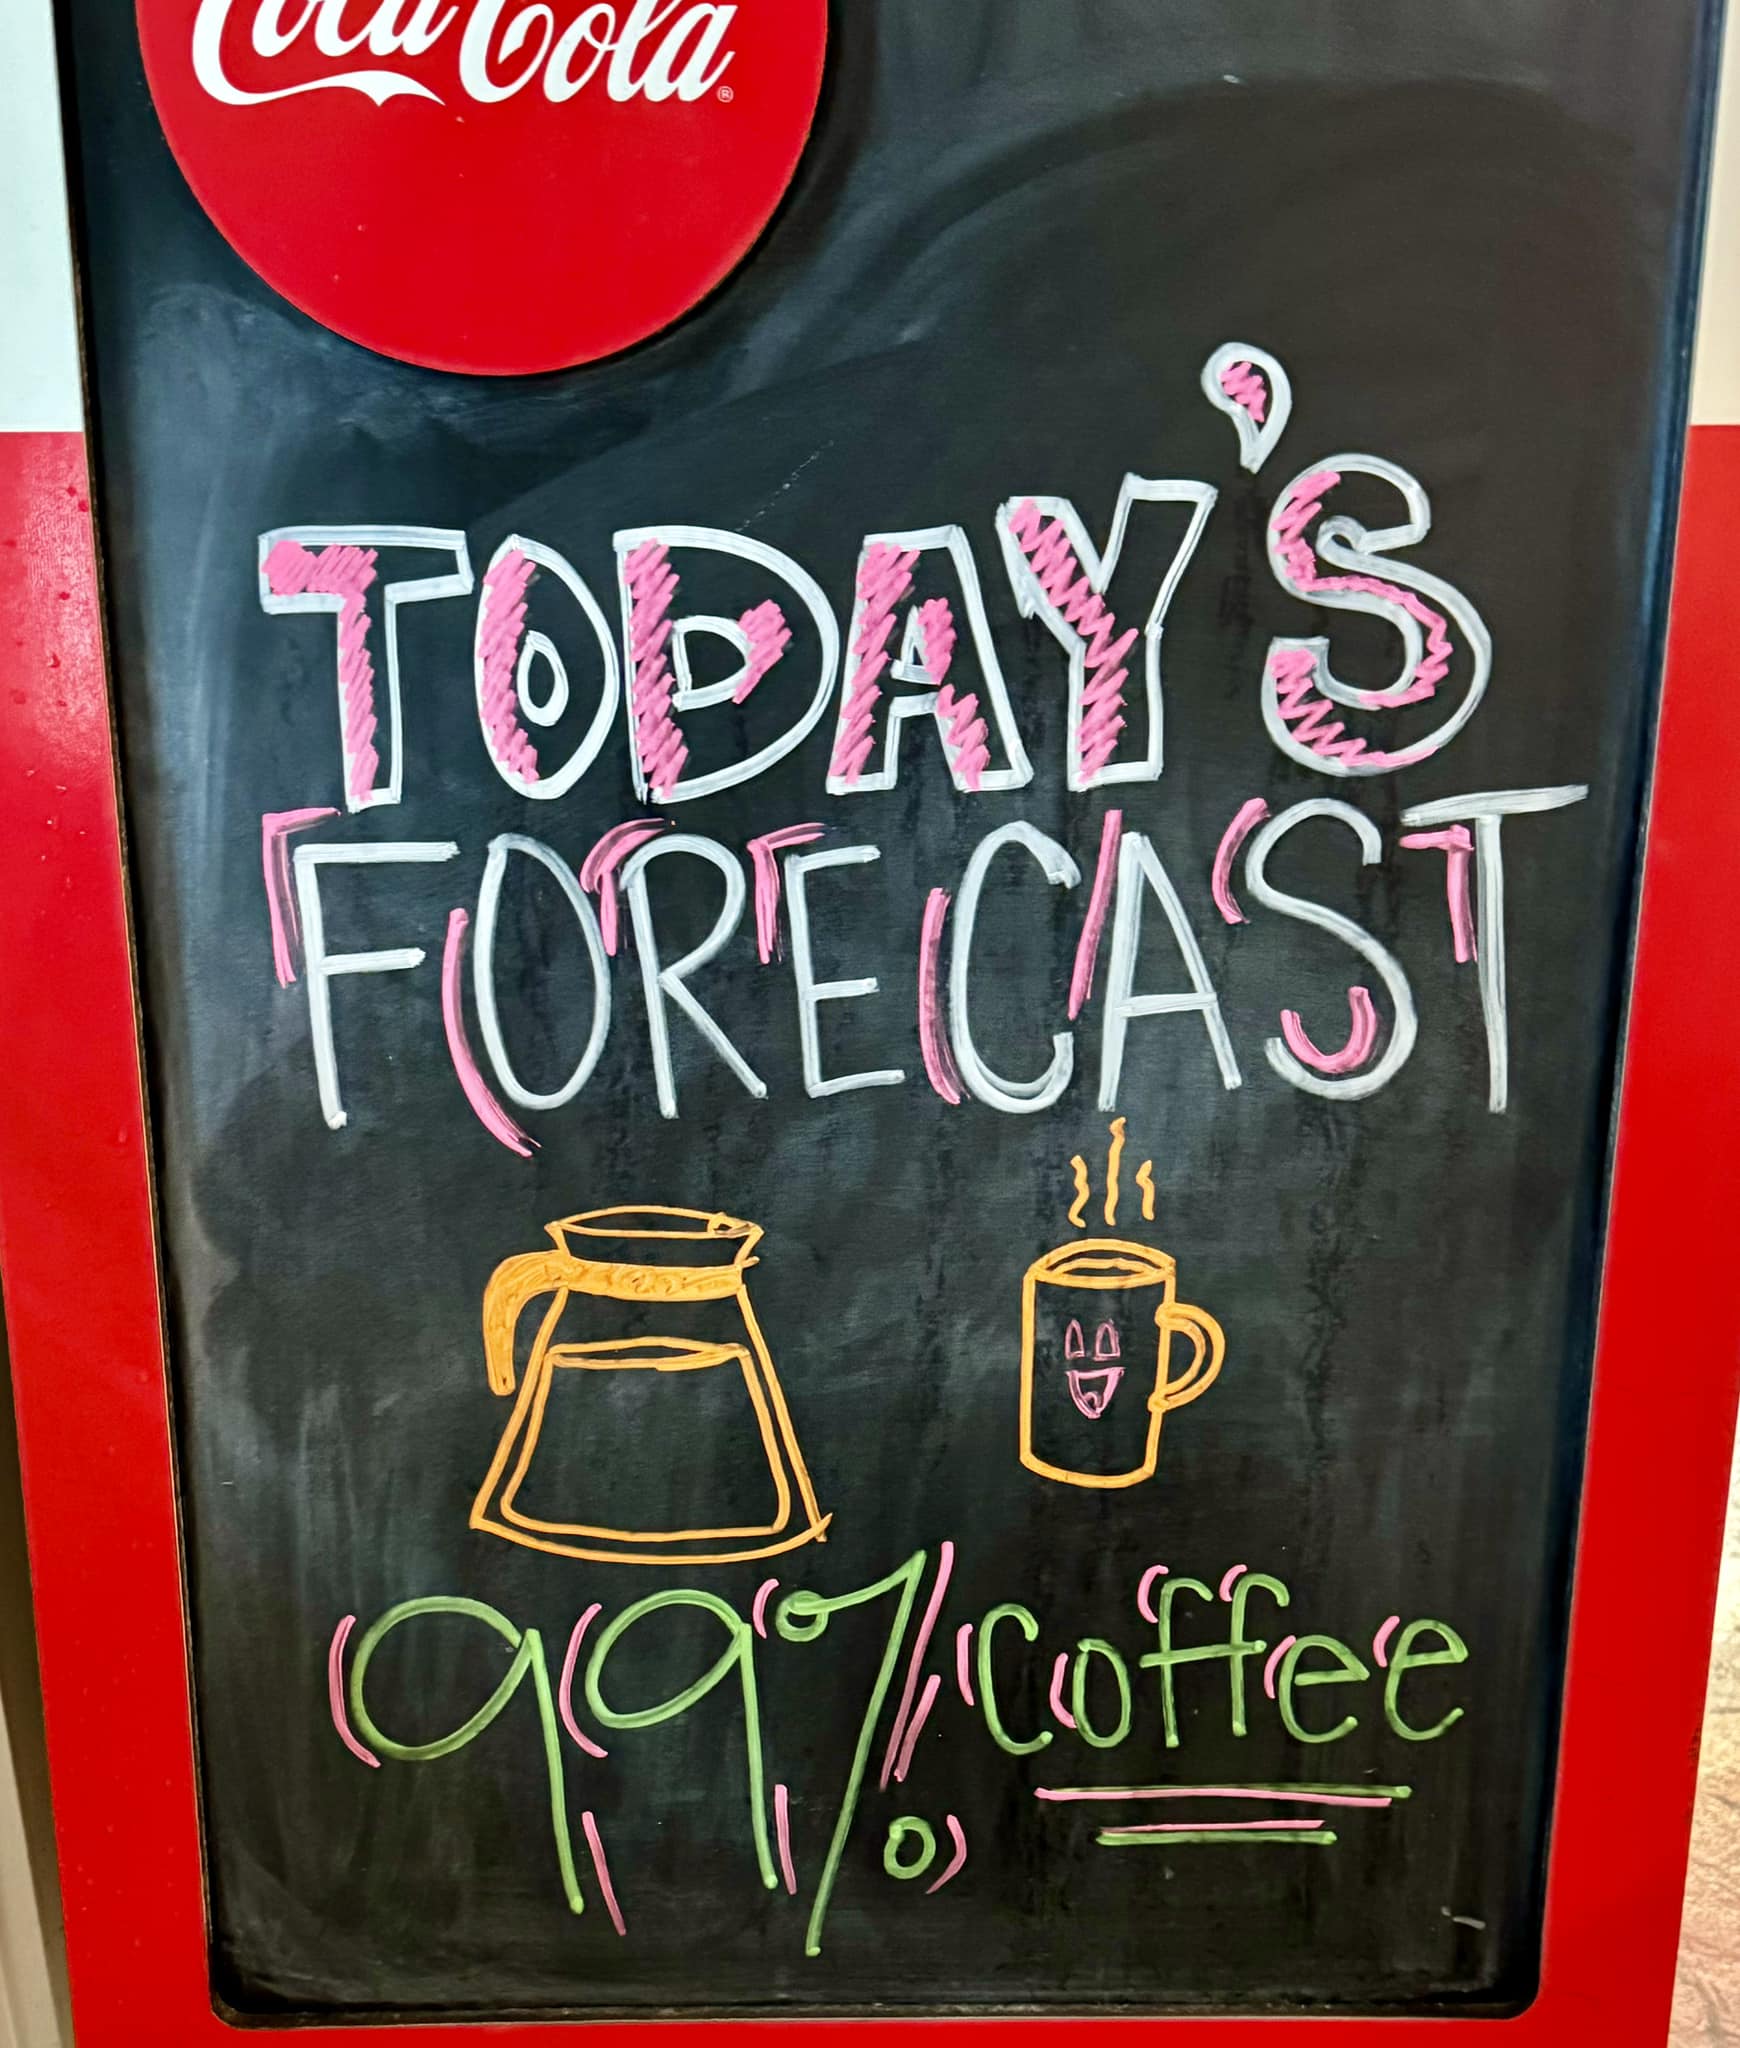 Coca-Cola®
TODAY'S
FORECAST
99% coffee